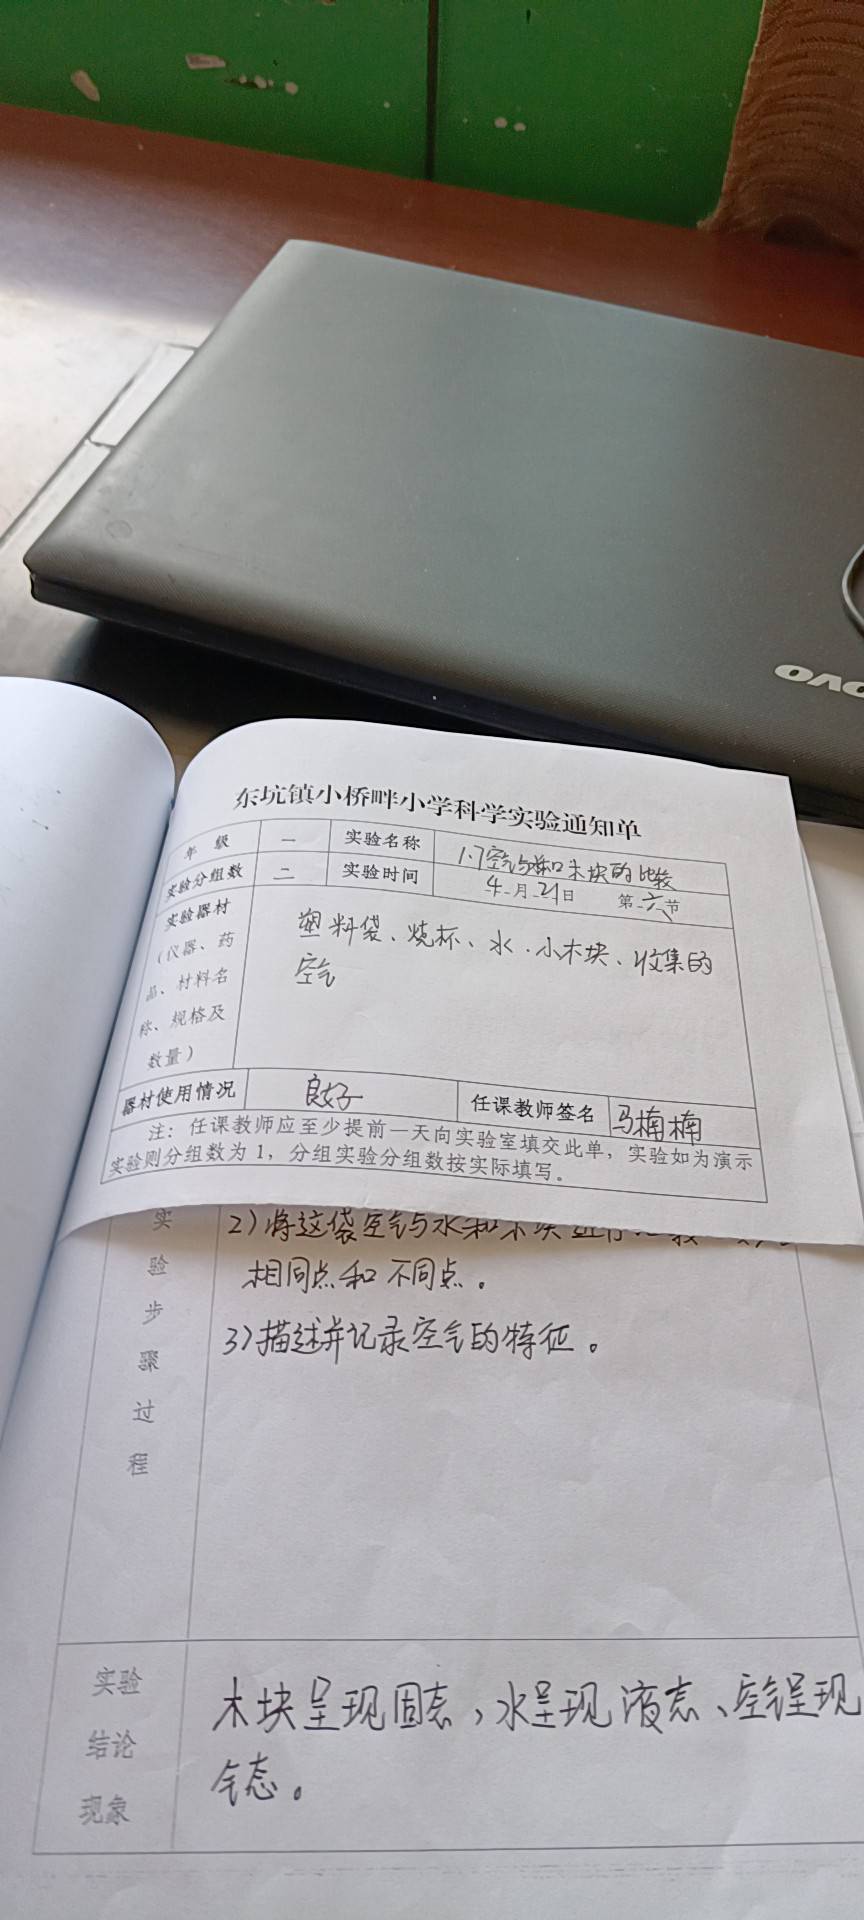 ovo
东坑镇小桥畔小学科学实验通知单
年 级 一 实验名称 1.7空气与水和木块的比较
实验分组数 二 实验时间 4月21日 第六节
实验器材
(仪器、药
品、材料名
称、规格及
数量)
塑料袋、烧杯、水、小木块、收集的
空气
器材使用情况 良好 任课教师签名 马楠楠
注：任课教师应至少提前一天向实验室填交此单，实验如为演示
实验则分组数为1，分组实验分组数按实际填写。
实
验
步
骤
过
程
2)将这袋空气与水和木块进行比较
相同点和不同点。
3)描述并记录空气的特征。
实验
结论
现象
木块呈现固态，水呈现液态、空气呈现
气态。